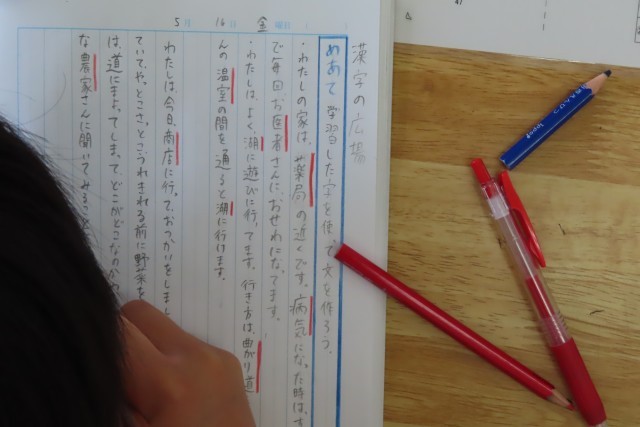 漢字の広場
めあて 学習した字を使って文を作ろう。
・わたしの家は、薬局の近くです。病気になった時は、す
で毎回お医者さんに、おせわになってます。
金曜日
・わたしは、よく、湖に遊びに行ってます。行き方は、曲がり道
16日
んの温室の間を通ると湖に行けます。
5月
わたしは、今日、商店に行って、おつかいをしまし
ていて、やっとこさっとこうりきれる前に野菜を
は、道にまよってしまって、どこがどこなのかわ
な農家さんに聞いてみること